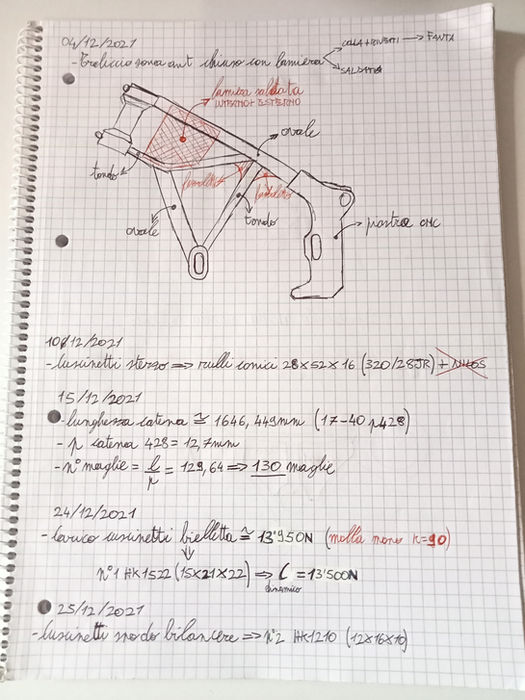 04/12/2021
- Traliccio zona ant chiuso con lamiera
COLLA + RIVETTI → FANTA
SALDATA
lamiera saldata
INTERNO + ESTERNO
ovale
tondo
fazzoletto
fazzoletto
ovale
tondo
piastra CNC
10/12/2021
- cuscinetti sterzo ⇒ rulli conici 28×52×16 (320/28JR) + NILOS
15/12/2021
- lunghezza catena ≅ 1646,449mm (17-40 p428)
- p catena 428 = 12,7mm
- n° maglie = l/p = 129,64 ⇒ 130 maglie
24/12/2021
- carico cuscinetti bielletta ≅ 13'950N (molla mono k=90)
n°1 HK1522 (15×21×22) ⇒ C = 13'500N
dinamico
25/12/2021
- cuscinetti snodo bilancere ⇒ n°2 HK1210 (12×16×10)